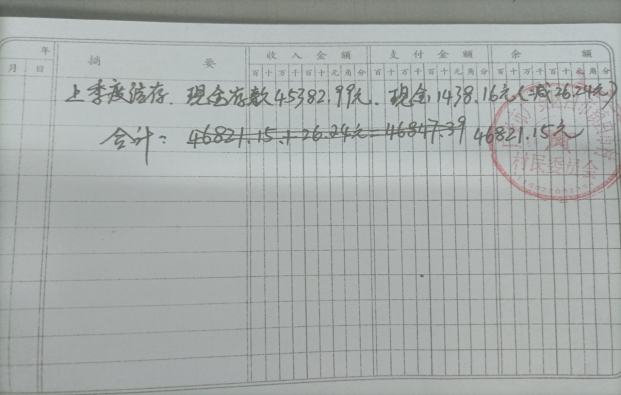 年
月 日 摘 要 收入金额 支付金额 余 额
百十万千百十元角分 百十万千百十元角分 百十万千百十元角分
上季度结存、现金存款45382.99元、现金1438.16元(减26.24元)
合计: 46821.15+26.24元=46847.39 46821.15元
村民委员会